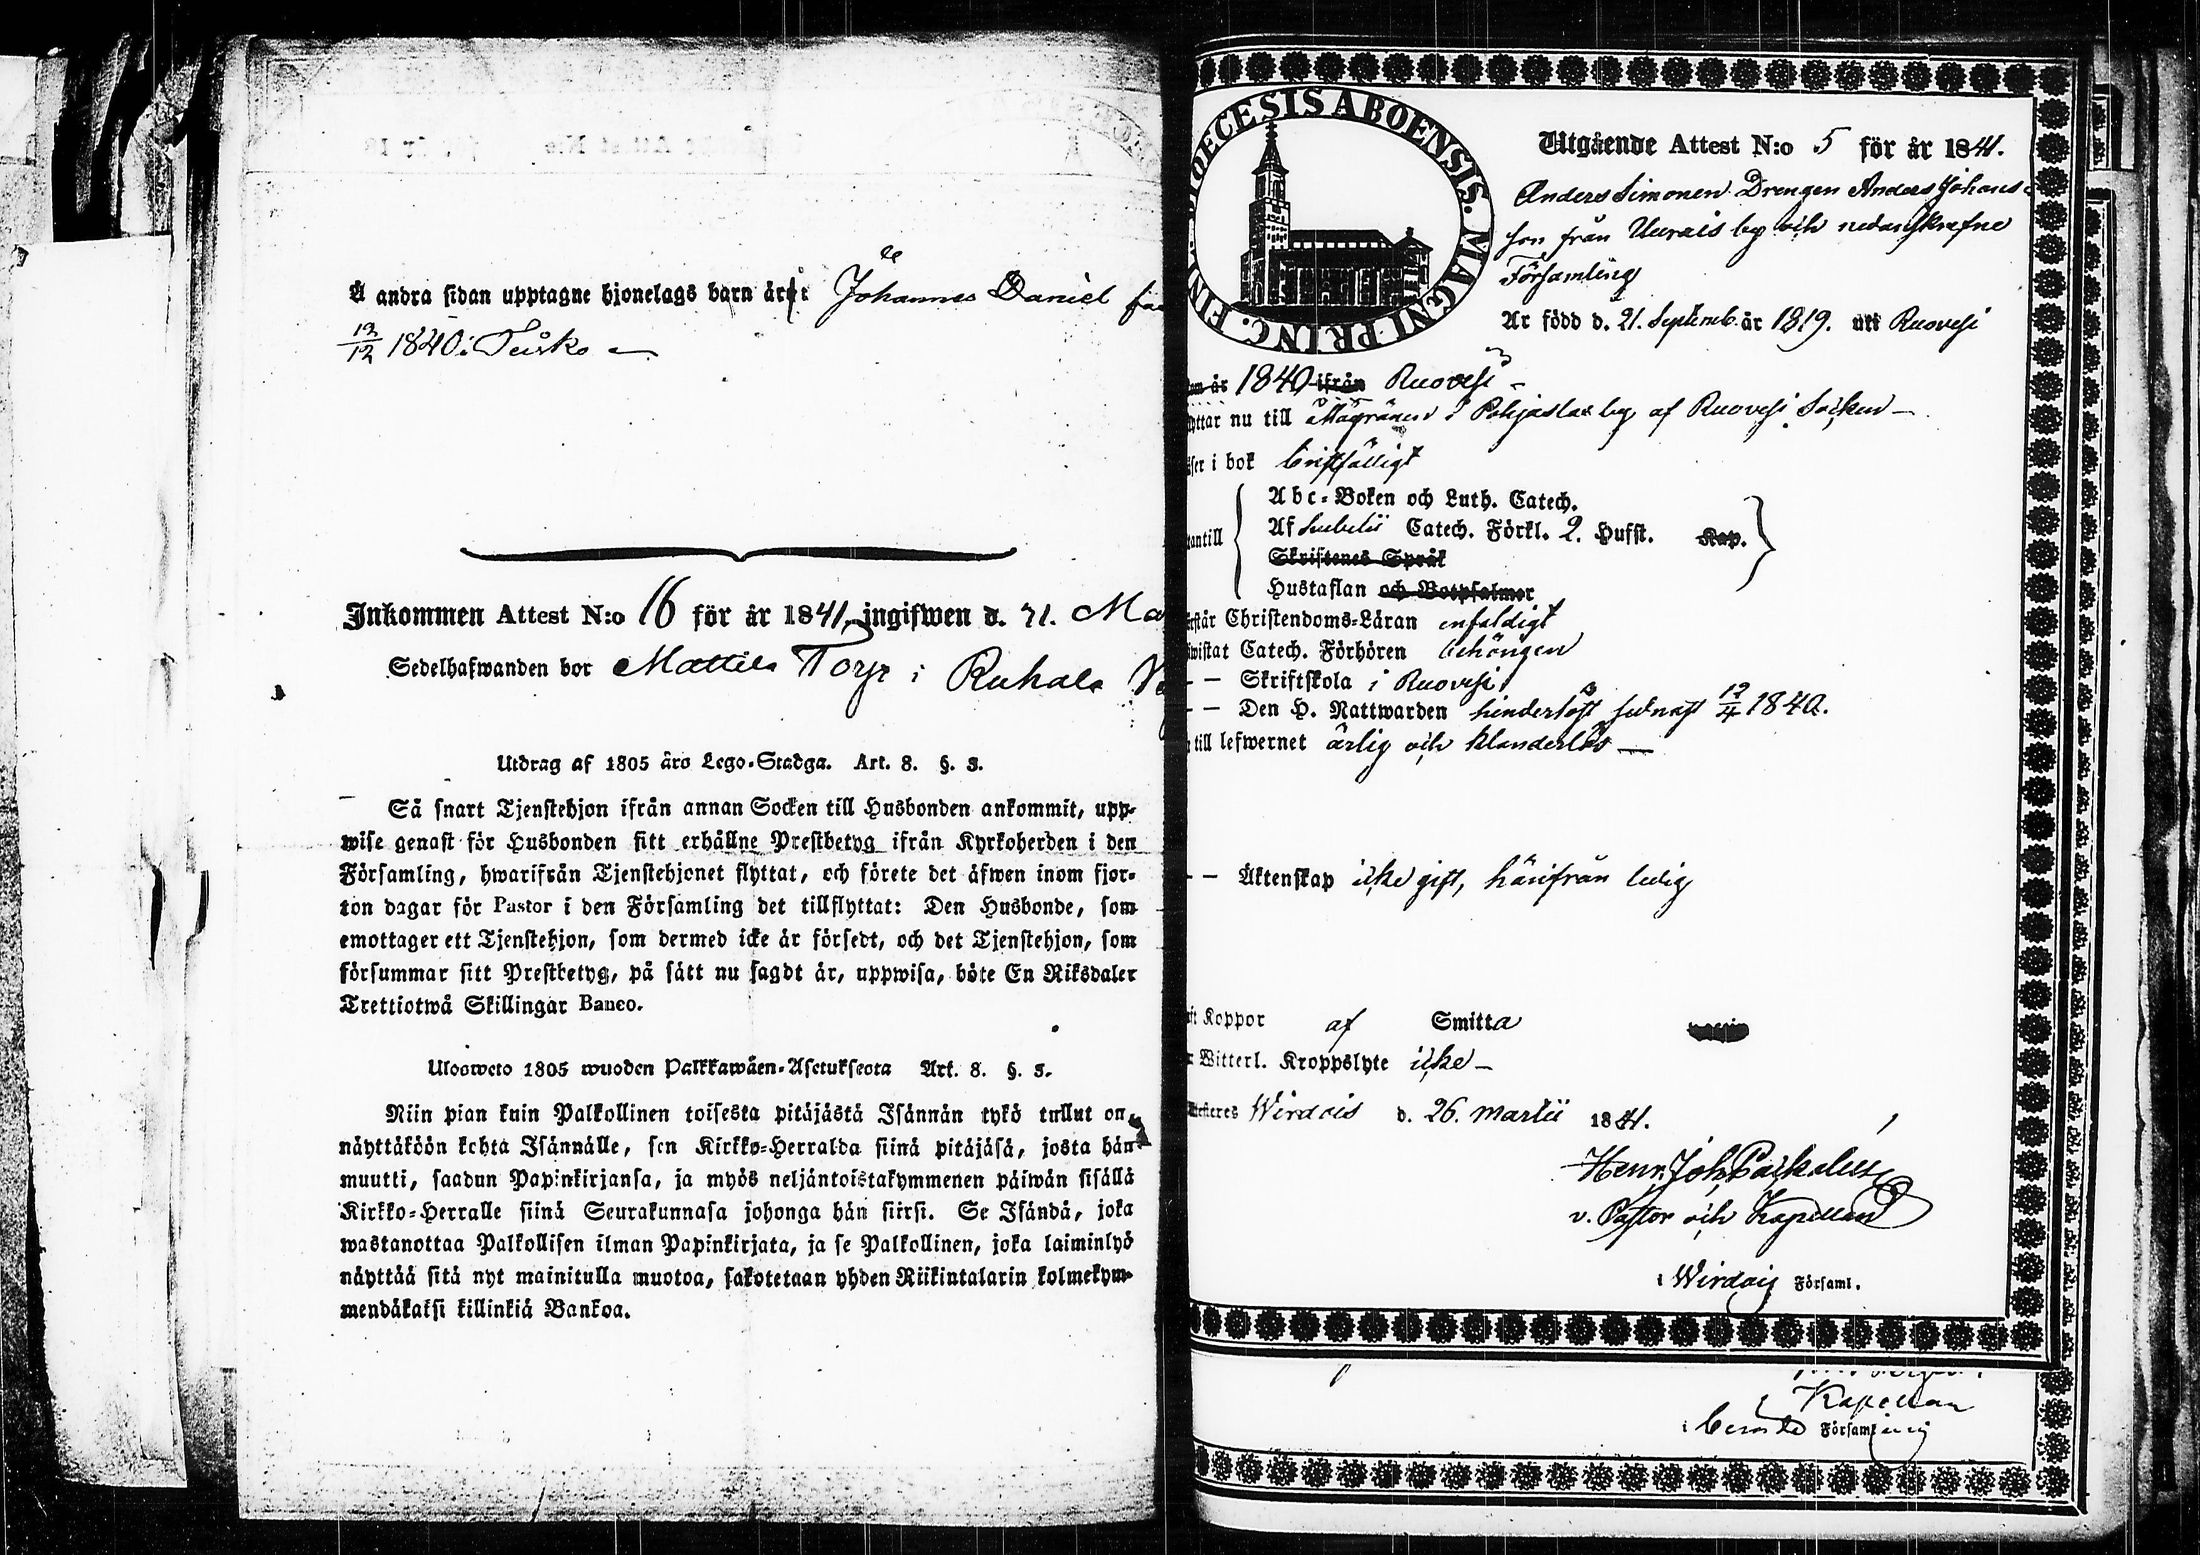 Å andra sidan upptagne hjonelags barn är: Johannes Daniel
12/12 1840 i Teisko
Inkommen Attest N:o 16 för år 1841, ingifwen d. 21.
Sedelhafwanden bor Mattila Torp i Ruhala
Utdrag af 1805 års Lego-Stadga. Art. 8. §. 3.
Så snart Tjenstehjon ifrån annan Socken till Husbonden ankommit, upp-
wise genast för Husbonden sitt erhållne Prestbetyg ifrån Kyrkoherden i den
Församling, hwarifrån Tjenstehjonet flyttat, och förete det äfwen inom fjor-
ton dagar för Pastor i den Församling det tillflyttat: Den Husbonde, som
emottager ett Tjenstehjon, som dermed icke är försedt, och det Tjenstehjon, som
försummar sitt Prestbetyg, på sätt nu sagdt är, uppwisa, böte En Riksdaler
Trettiotwå Skillingar Banco.
Ulosweto 1805 wuoden Palkkawäen-Asetuksesta Art. 8. §. 3.
Niin pian kuin Palkollinen toisesta pitäjästä Isännän tykö tullut on,
näyttäköön kohta Isännälle, sen Kirkko-Herralda siinä pitäjäsä, josta hän
muutti, saadun Papinkirjansa, ja myös neljäntoistakymmenen päiwän sisällä
Kirkko-Herralle siinä Seurakunnasa johonga hän siirsi. Se Isändä, joka
wastanottaa Palkollisen ilman Papinkirjata, ja se Palkollinen, joka laiminlyö
näyttää sitä nyt mainitulla muotoa, sakotetaan yhden Riikintalarin kolmekym-
mendäkaksi killinkiä Bankoa.
DIOECESIS ABOENSIS. MAGNI PRINC. FIN
Utgående Attest N:o 5 för år 1841.
Anders Simonen Drengen Anders Johans-
son från Uurais by och nedanskrefne
Församling
Är född d. 21. Septemb. år 1819. uti Ruovesi
år 1840 ifrån Ruovesi
nu till i Pohjaslax by af Ruovesi Socken
i bok bristfälligt
Abc-Boken och Luth. Catech.
Af Svebelii Catech. Förkl. 2. Hufst. Kap.
Skriftenes Språk
Hustaflan och Botpsalmer
Christendoms-Läran enfaldigt
Catech. Förhören behörigen
– – Skriftskola i Ruovesi
– – Den H. Nattwarden hinderlöst sednast 12/4 1840.
till lefwernet ärlig och klanderlös
– – Äktenskap icke gift, härifrån ledig
Koppor af Smitta
Witterl. Kroppslyte icke
Wirdois d. 26. Martii 1841.
Henr. Joh.
v. Pastor och Kapellan
i Wirdois Församl.
Kapellan
i Församling